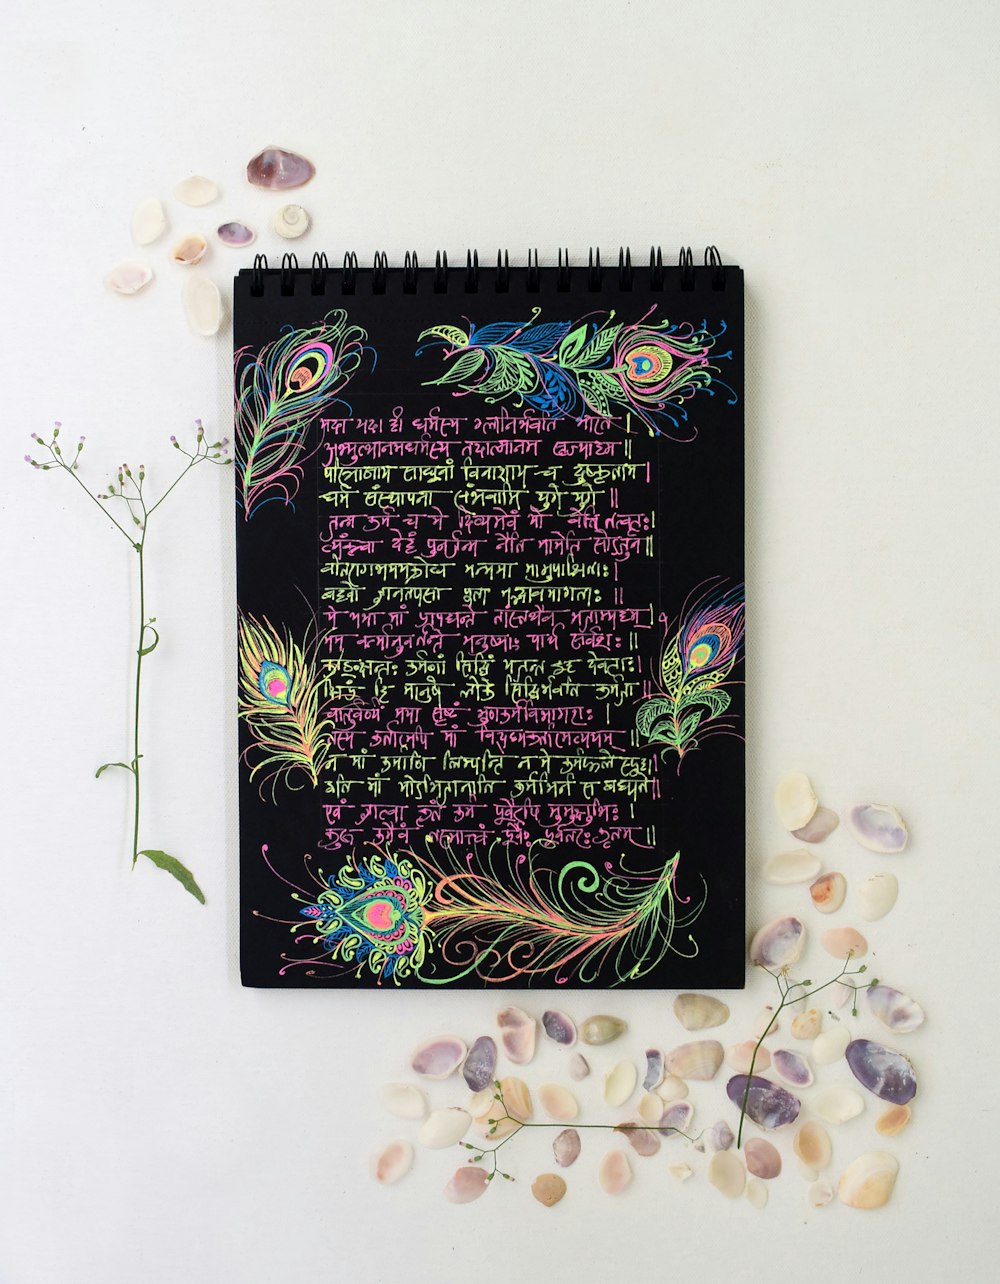 यदा यदा ही धर्मस्य ग्लानिर्भवति भारत |
अभ्युत्थानमधर्मस्य तदात्मानम सृज्याहम ||
परित्राणाय साधूनां विनाशाय च दुष्कृताम |
धर्म संस्थापना संभवामि युगे युगे ||
जन्म कर्म च मे दिव्यमेवं यो वेत्ति तत्वतः |
त्यक्त्वा देहं पुनर्जन्म नैति मामेति सोऽर्जुन ||
वीतरागभयक्रोधा मन्मया मामुपाश्रिताः |
बहवो ज्ञानतपसा पूता मद्भावमागताः ||
ये यथा मां प्रपद्यन्ते तांस्तथैव भजाम्यहम |
मम वर्त्मानुवर्तन्ते मनुष्याः पार्थ सर्वशः ||
काङ्क्षन्तः कर्मणां सिद्धिं यजन्त इह देवताः |
क्षिप्रं हि मानुषे लोके सिद्धिर्भवति कर्मजा ||
चातुर्वर्ण्यं मया सृष्टं गुणकर्मविभागशः |
तस्य कर्तारमपि मां विद्ध्यकर्तारमव्ययम ||
न मां कर्माणि लिम्पन्ति न मे कर्मफले स्पृहा |
इति मां योऽभिजानाति कर्मभिर्न स बध्यते ||
एवं ज्ञात्वा कृतं कर्म पूर्वैरपि मुमुक्षुभिः |
कुरु कर्मैव तस्मात्वं पूर्वैः पूर्वतरं कृतम ||